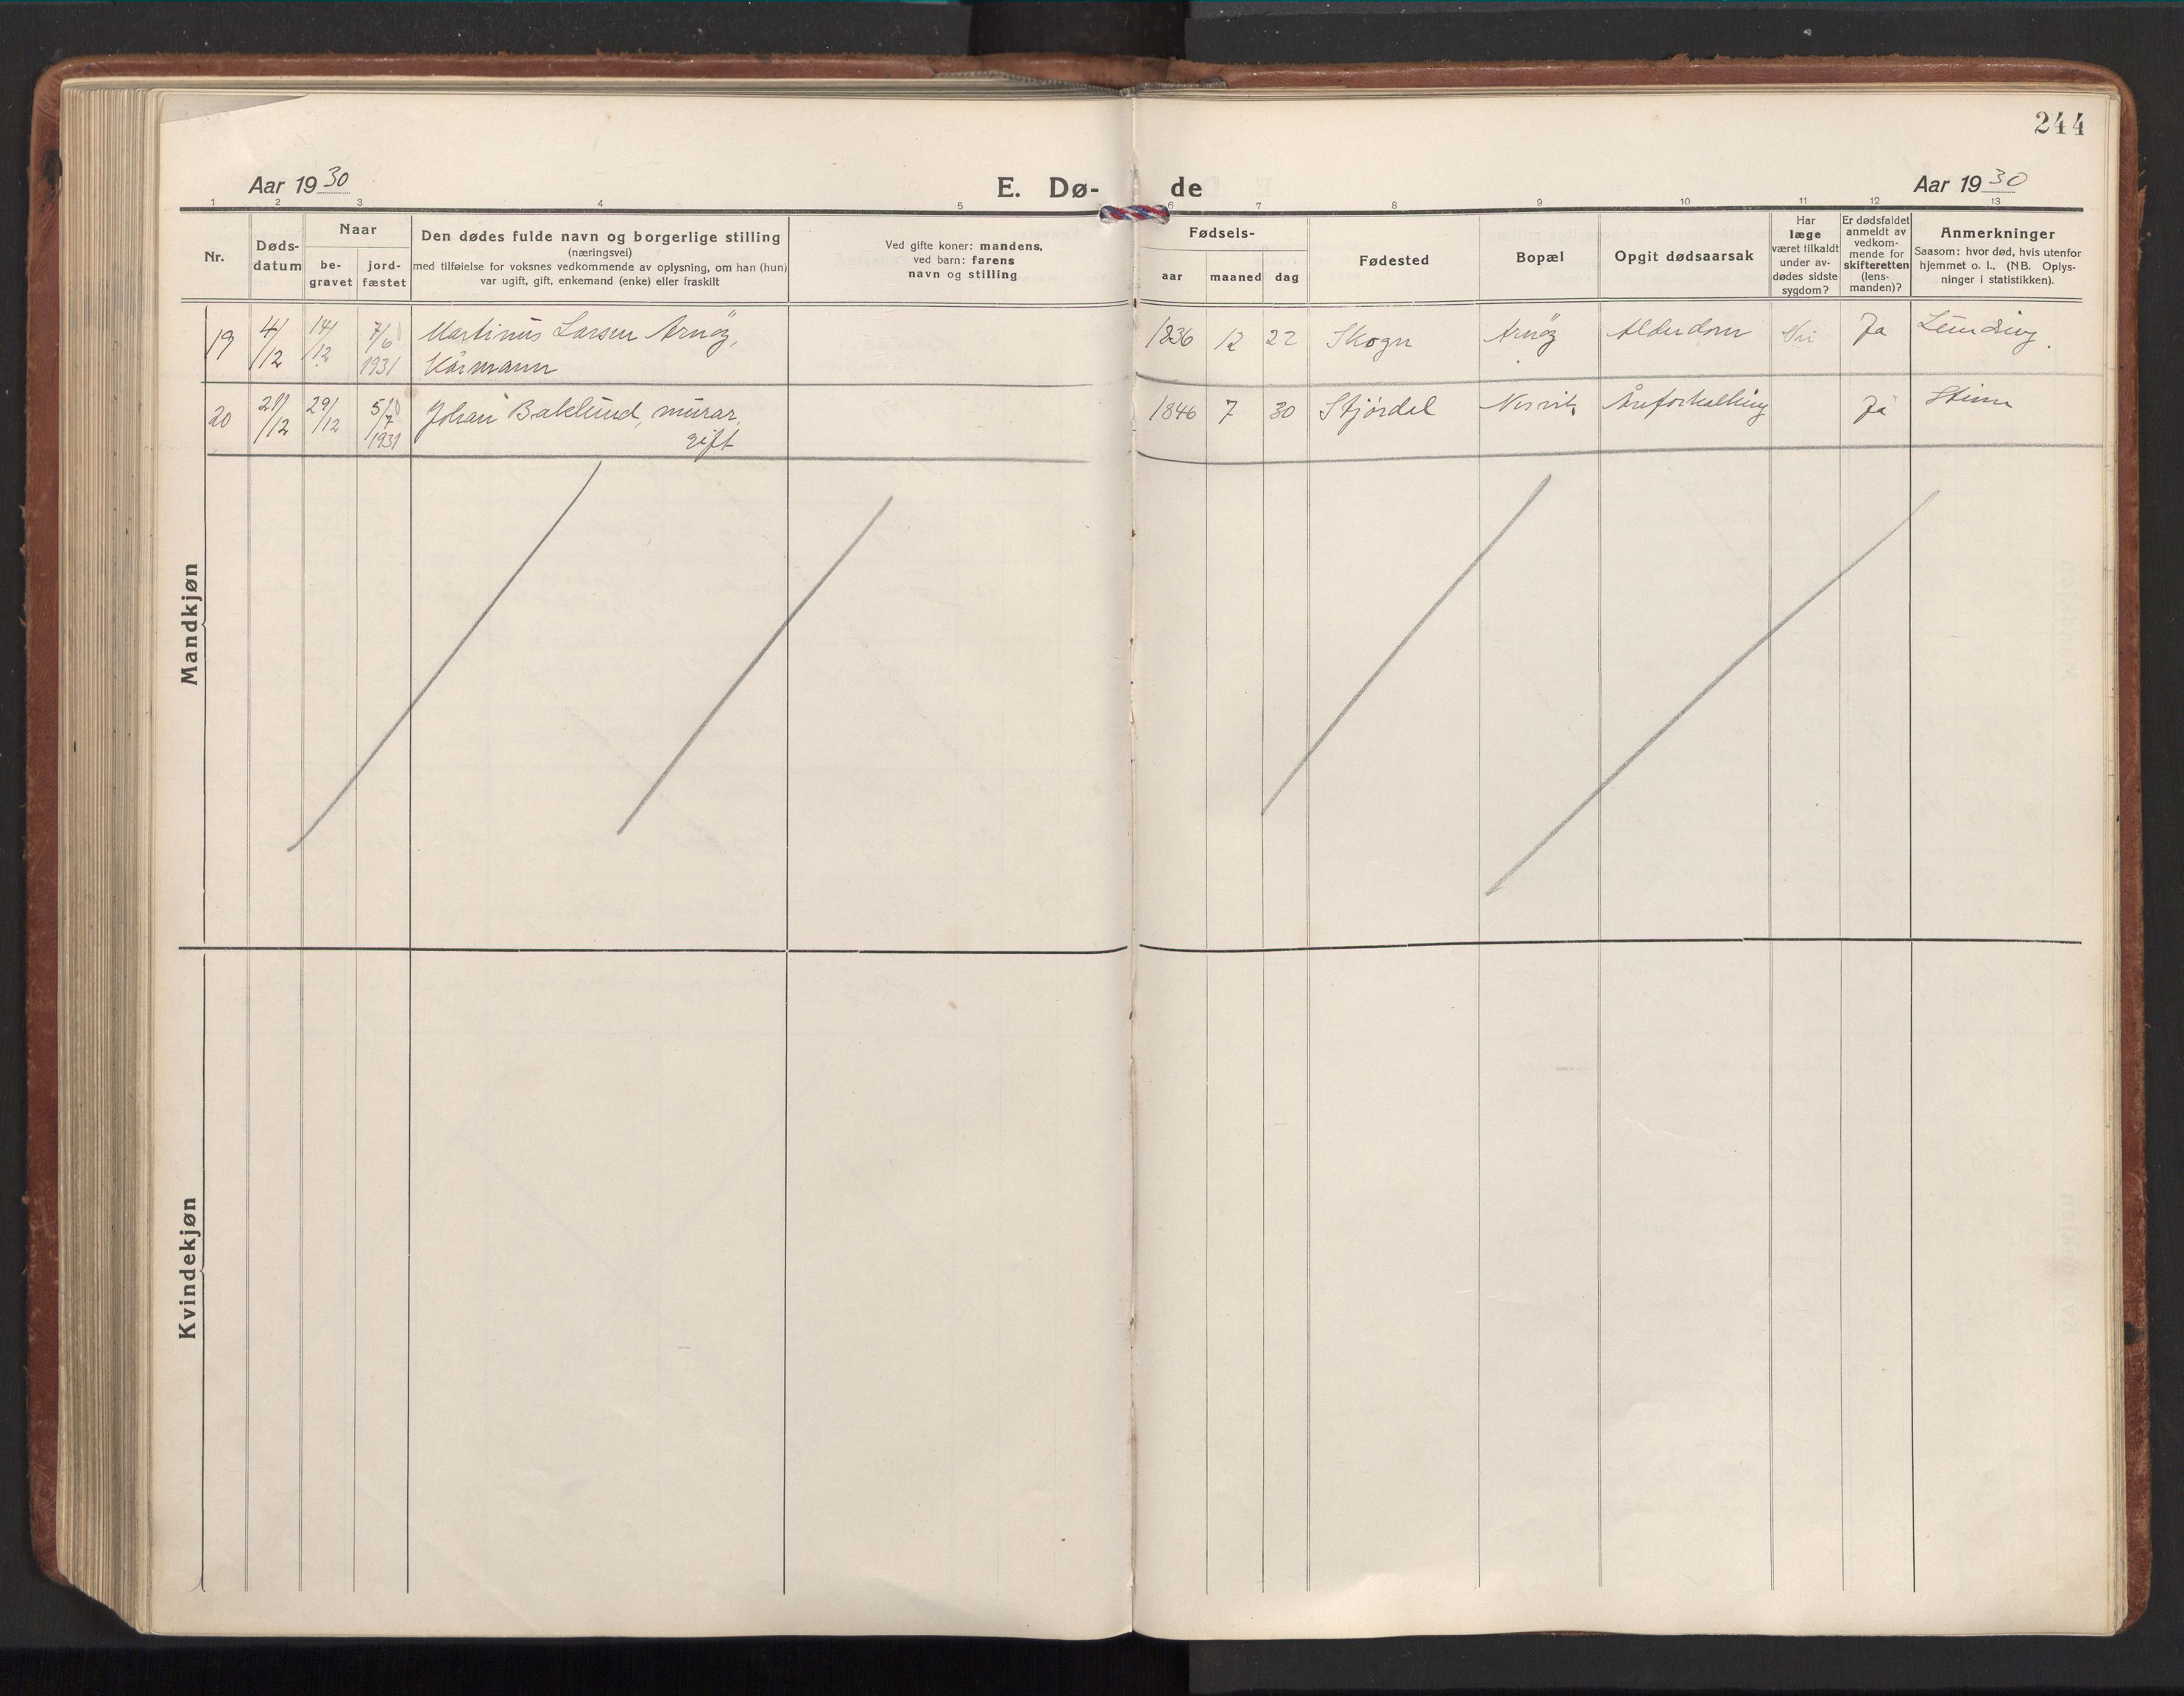 244
Aar 19 30
E. Dø-
de
Aar 19 30
1 2 3 4 5 6 7 8 9 10 11 12 13
Nr.
Døds-
datum
Naar
be-
gravet
jord-
fæstet
Den dødes fulde navn og borgerlige stilling
(næringsvei)
med tilføielse for voksnes vedkommende av oplysning, om han (hun)
var ugift, gift, enkemand (enke) eller fraskilt
Ved gifte koner: mandens,
ved barn: farens
navn og stilling
Fødsels-
aar
maaned
dag
Fødested
Bopæl
Opgit dødsaarsak
Har
læge
været tilkaldt
under av-
dødes sidste
sygdom?
Er dødsfaldet
anmeldt av
vedkom-
mende for
skifteretten
(lens-
manden)?
Anmerkninger
Saasom: hvor død, hvis utenfor
hjemmet o. l.. (NB. Oplys-
ninger i statistikken).
Mandkjøn
19 4/12 14/12 7/6 1931 Martinus Larsen Arnöy, 1836 12 22 Skogn Arnöy Alderdom Ja
Kårmann
20 29/12 5/7 1931 Johan Baklund, murar, 1846 7 30 Stjórdal Åreforkalking Ja
gift
Kvindekjøn